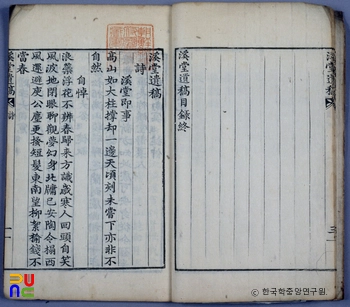 溪堂遺稿
溪堂遺稿目錄終
溪堂遺稿
詩
溪堂即事
高山如大柱撑却一邊天頃刻未嘗下亦非不
自然
自悼
浪蘂浮花不辨春歸來方識歲寒人回頭自笑
風波地閉眼聊觀夢幻身北牖已安陶令榻西
風還避庾公塵更搔短髮東南望柳絮榆錢不
當春
溪堂遺稿 詩 一
ⓒ 한국학중앙연구원